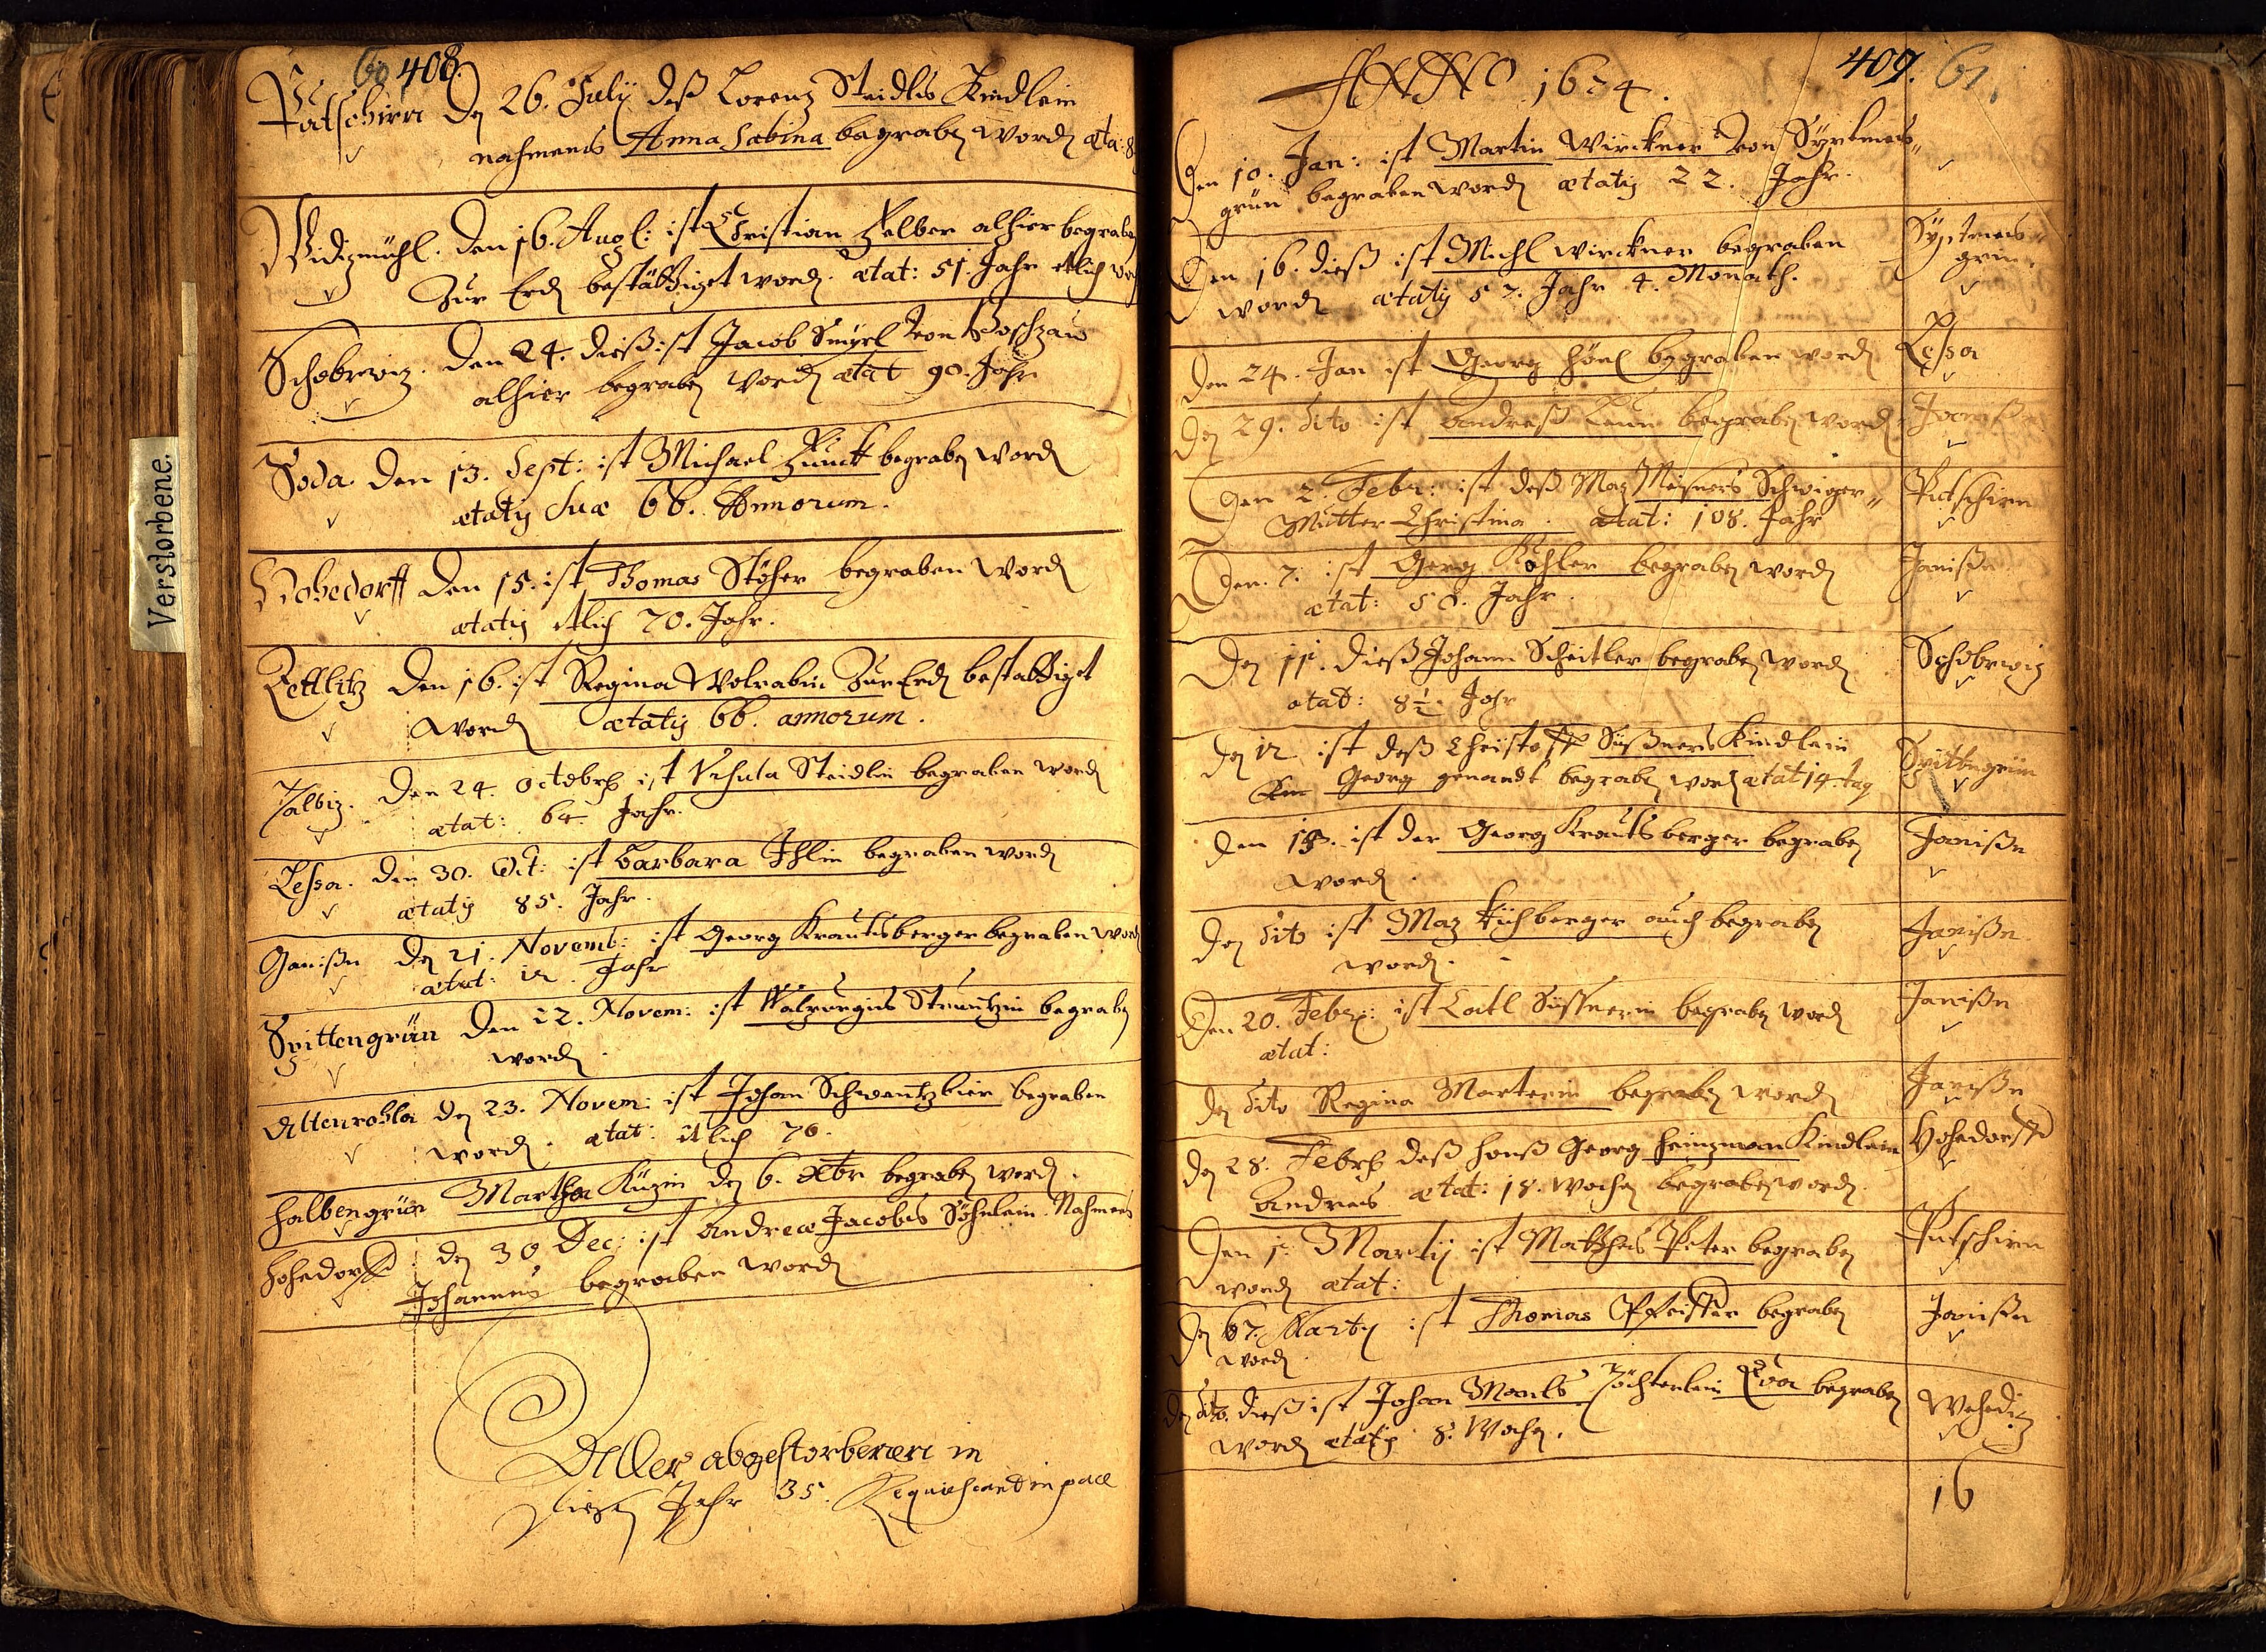 Verstorbene.
60 408.
Putschirn Den 26. Julij deß Lorenz Steidls Kindlein
nahmens Anna Sabina begraben worden æta: 8
Widizmühl. Den 16. Augl: ist Christian Felber alhier begraben
Zur Erden bestättiget worden. ætat: 51. Jahr etlich
Schobrowiz. Den 24. dieß ist Jacob von Poschzau
alhier begraben worden ætat 90. Jahr
Soda. Den 13. Sept: ist Michael Zinck begraben worden
ætatis suæ 66. Annorum.
Hohedorff Den 15. ist Thomas Stöher begraben worden
ætatis etlich 70. Jahr.
Zettlitz Den 16. ist Regina Wolrabin Zur Erden bestättiget
worden ætatis 66. annorum.
Talbiz. Den 24. Octobris ist Vrsula Steidlin begraben worden
ætat: 64. Jahr.
Lessa. Den 30. Oct: ist Barbara Ihlin begraben worden
ætatis 85. Jahr.
Ganissn Den 21. Novemb: ist Georg Krautsberger begraben worden
ætat: 12. Jahr
Spittengrün Den 22. Novem: ist Walpurgis begraben
worden.
Altenrohla Den 23. Novem: ist Johan Schwantzbier begraben
worden. ætat: etlich 70.
Halbengrün Martha Küzin den 6. Xbr begraben worden.
Hohedorff den 30 Dec: ist Andreæ Jacobs Söhnlein Nahmens
Johannes begraben worden
Aller abgestorbenen in
diesen Jahr 35. Requiescant in pace
ANNO 1674. 409. 61.
Den 10. Jan: ist Martin Wirckner von Syrlmes„
grün begraben worden ætatis 22. Jahr.
Den 16. dieß ist Michl Wirckner begraben
worden ætatis 57. Jahr 4. Monath.
Den 24. Jan ist Georg Hönl begraben worden Lessa
Den 29. dito ist Andreß begraben worden Janißn
Den 2. Febr: ist deß Maz Meisners Schwiger„ Putschirn
Mutter Christina. ætat: 108. Jahr
Den. 7. ist Georg Köhler begraben worden Janißn
ætat: 50. Jahr.
Den 11. dieß Johann Scheitler begraben worden Schobrowiz
ætat: 8½. Jahr
Den 12 ist deß Christoff Süßners Kindlein Spittengrün
Georg genandt begraben worden ætat 14. tag
Den 18. ist der Georg Krautsberger begraben Janißn
worden.
Den dito ist Maz begraben Janißn
worden.
Den 20. Febr: ist begraben worden Janißn
ætat:
Den dito Regina Marterin begraben worden Janißn
Den 28. Febris deß Hanß Georg Heinzman Kindlein Hohedorff
Andreas ætat: 18. Wochen begraben worden.
Den 1. Martij ist Matthes Peter begraben Putschirn
worden ætat:
Den 67. Martij ist Thomas Pfeiffer begraben Janißn
worden.
Den dito. dieß ist Johan Töchterlein Eva begraben Wehediz
worden ætatis 8. Wochen.
16